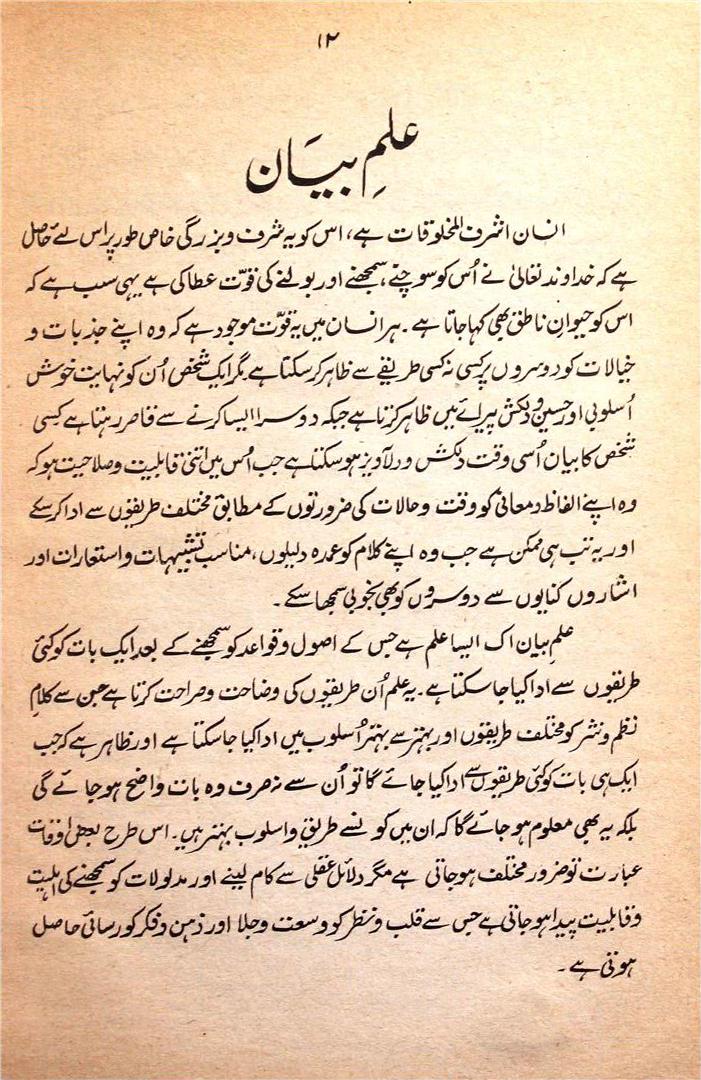 ۱۲
علمِ بیَان
انسان اشرف المخلوقات ہے، اس کو یہ شرف و بزرگی خاص طور پر اس لئے حاصل
ہے کہ خداوند تعالیٰ نے اُس کو سوچنے، سمجھنے اور بولنے کی قوّت عطا کی ہے یہی سبب ہے کہ
اس کو حیوانِ ناطق بھی کہا جاتا ہے۔ ہر انسان میں یہ قوّت موجود ہے کہ وہ اپنے جذبات و
خیالات کو دوسروں پر کسی نہ کسی طریقے سے ظاہر کر سکتا ہے مگر ایک شخص اُن کو نہایت خوش
اُسلوبی اور حسین و دلکش پیرائے میں ظاہر کرتا ہے جبکہ دوسرا ایسا کرنے سے قاصر رہتا ہے کسی
شخص کا بیان اُسی وقت دلکش و دلآویز ہو سکتا ہے جب اُس میں اتنی قابلیت و صلاحیت ہو کہ
وہ اپنے الفاظ و معانی کو وقت و حالات کی ضرورتوں کے مطابق مختلف طریقوں سے ادا کر سکے
اور یہ تب ہی ممکن ہے جب وہ اپنے کلام کو عمدہ دلیلوں، مناسب تشبیہات و استعارات اور
اشاروں کنایوں سے دوسروں کو بھی بخوبی سمجھا سکے۔
علمِ بیان اک ایسا علم ہے جس کے اصول و قواعد کو سمجھنے کے بعد ایک بات کو کئی
طریقوں سے ادا کیا جا سکتا ہے۔ یہ علم اُن طریقوں کی وضاحت و صراحت کرتا ہے جن سے کلامِ
نظم و نثر کو مختلف طریقوں اور بہتر سے بہتر اُسلوب میں ادا کیا جا سکتا ہے اور ظاہر ہے کہ جب
ایک ہی بات کو کئی طریقوں سے ادا کیا جائے گا تو اُن سے نہ صرف وہ بات واضح ہو جائے گی
بلکہ یہ بھی معلوم ہو جائے گا کہ ان میں کونسے طریق و اسلوب بہتر ہیں۔ اس طرح بعض اوقات
عبارت تو ضرور مختلف ہو جاتی ہے مگر دلائلِ عقلی سے کام لینے اور مدلولات کو سمجھنے کی اہلیت
و قابلیت پیدا ہو جاتی ہے جس سے قلب و نظر کو وسعت و جلا اور ذہن و فکر کو رسائی حاصل
ہوتی ہے۔